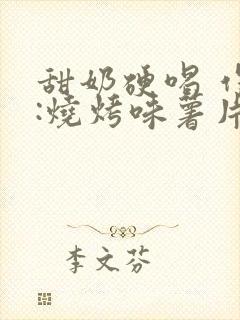 甜奶硬唱
:燒烤味薯片
李文芬